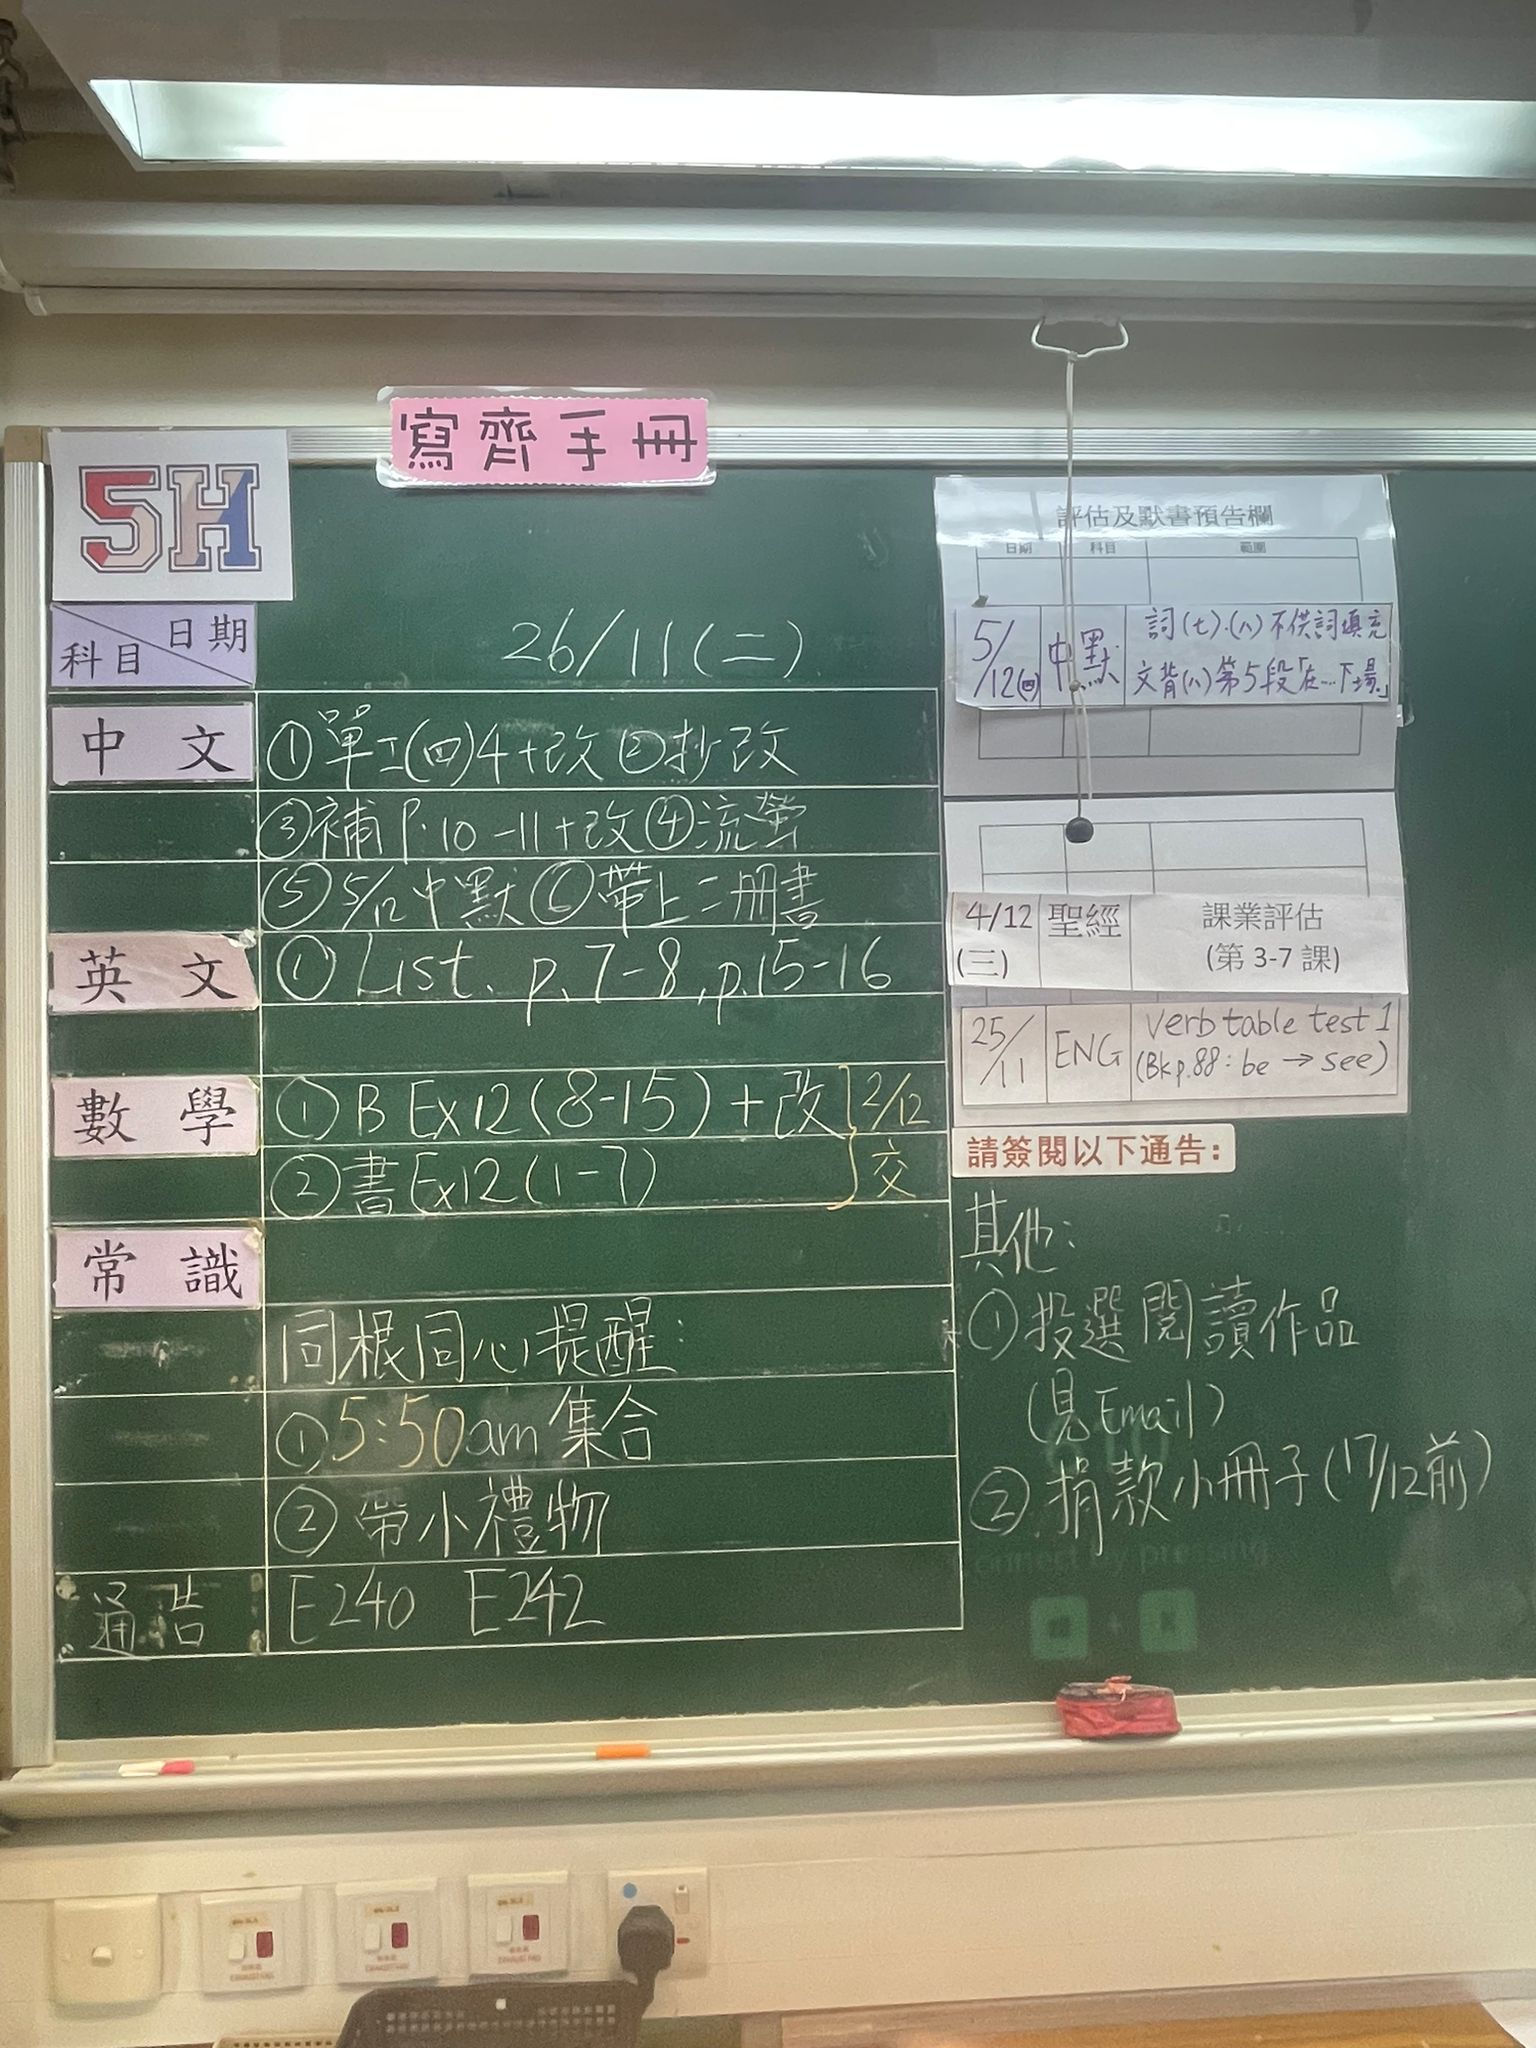 寫齊手冊
5H
日期
科目
26/11(二)
中文
①單二(四)4+改 ②抄改
③補P.10-11+改 ④流螢
⑤5/12中默 ⑥帶上二冊書
英文
① List. p.7-8, p.15-16
數學
① B Ex12(8-15)+改
②書Ex12(1-7)
2/12
交
常識
同根同心提醒:
①5:50am集合
②帶小禮物
通告
E240 E242
評估及默書預告欄
日期 科目 範圍
5/12(四) 中默 詞(七).(八)不供詞填充
文背(八)第5段「在…下場。」
4/12 聖經 課業評估
(三) (第 3-7 課)
25/11 ENG Verb table test 1
(Bk p.88: be → see)
請簽閱以下通告:
其他:
①投選閱讀作品
(見Email)
②捐款小冊子(17/12前)